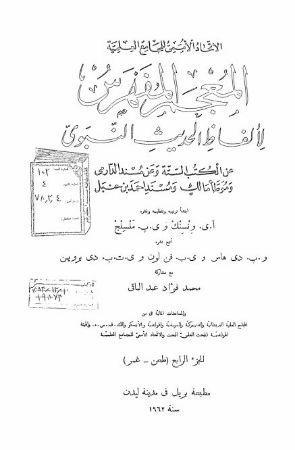 الاتحاد الأممي للمجامع العلمية
المعجم المفهرس
لألفاظ الحديث النبوي
عن الكتب الستة وعن مسند الدارمي
وموطأ مالك ومسند أحمد بن حنبل
ابتدأ ترتيبه وتنظيمه ونشره
أ. ى. ونسنك و ى. پ. منسنج
اتبع نشره
و. پ. دى هاس و ى. ب. فن لون و ى. ت. پ. دى بروين
مع مشاركة
محمد فؤاد عبد الباقى
الجزء الرابع (طعن - غمر)
مطبعة بريل فى مدينة ليدن
سنة ١٩٦٢
١٠٢
٤
٧٨,٢,٤